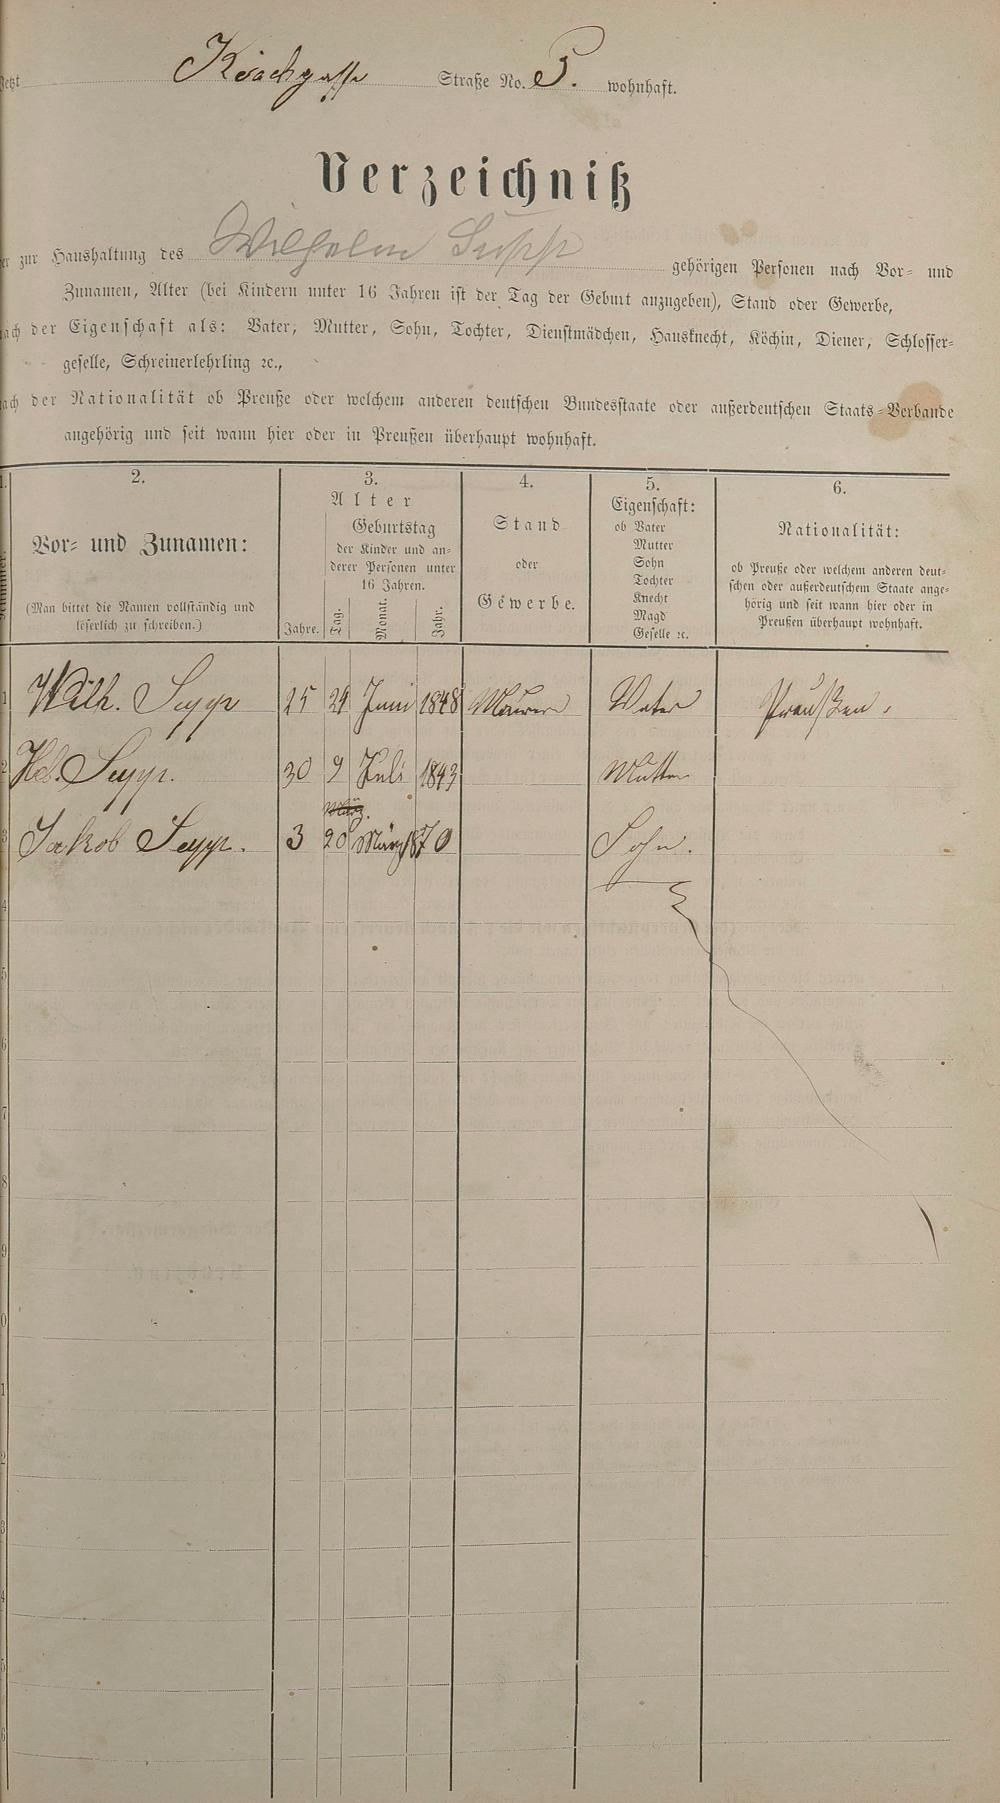 Jetzt Straße No. 5. wohnhaft.
Verzeichniß
der zur Haushaltung des Wilhelm gehörigen Personen nach Vor- und
Zunamen, Alter (bei Kindern unter 16 Jahren ist der Tag der Geburt anzugeben), Stand oder Gewerbe,
nach der Eigenschaft als: Vater, Mutter, Sohn, Tochter, Dienstmädchen, Hausknecht, Köchin, Diener, Schlosser-
geselle, Schreinerlehrling ꝛc.,
nach der Nationalität ob Preuße oder welchem anderen deutschen Bundesstaate oder außerdeutschen Staats-Verbande
angehörig und seit wann hier oder in Preußen überhaupt wohnhaft.
1.
2.
Vor- und Zunamen:
(Man bittet die Namen vollständig und
leserlich zu schreiben.)
3.
Alter
Geburtstag
der Kinder und an-
derer Personen unter
16 Jahren.
Jahre. Tag. Monat. Jahr.
4.
Stand
oder
Gewerbe.
5.
Eigenschaft:
ob Vater
Mutter
Sohn
Tochter
Knecht
Magd
Geselle ꝛc.
6.
Nationalität:
ob Preuße oder welchem anderen deut-
schen oder außerdeutschem Staate ange-
hörig und seit wann hier oder in
Preußen überhaupt wohnhaft.
1 Wilh. 25 Juni 1848 Maurer Vater Preußen.
2 30 9 Juli 1843 Mutter
März.
3 Jakob 3 20 März 1870 Sohn.
4
5
6
7
8
9
0
1
2
3
4
5
6